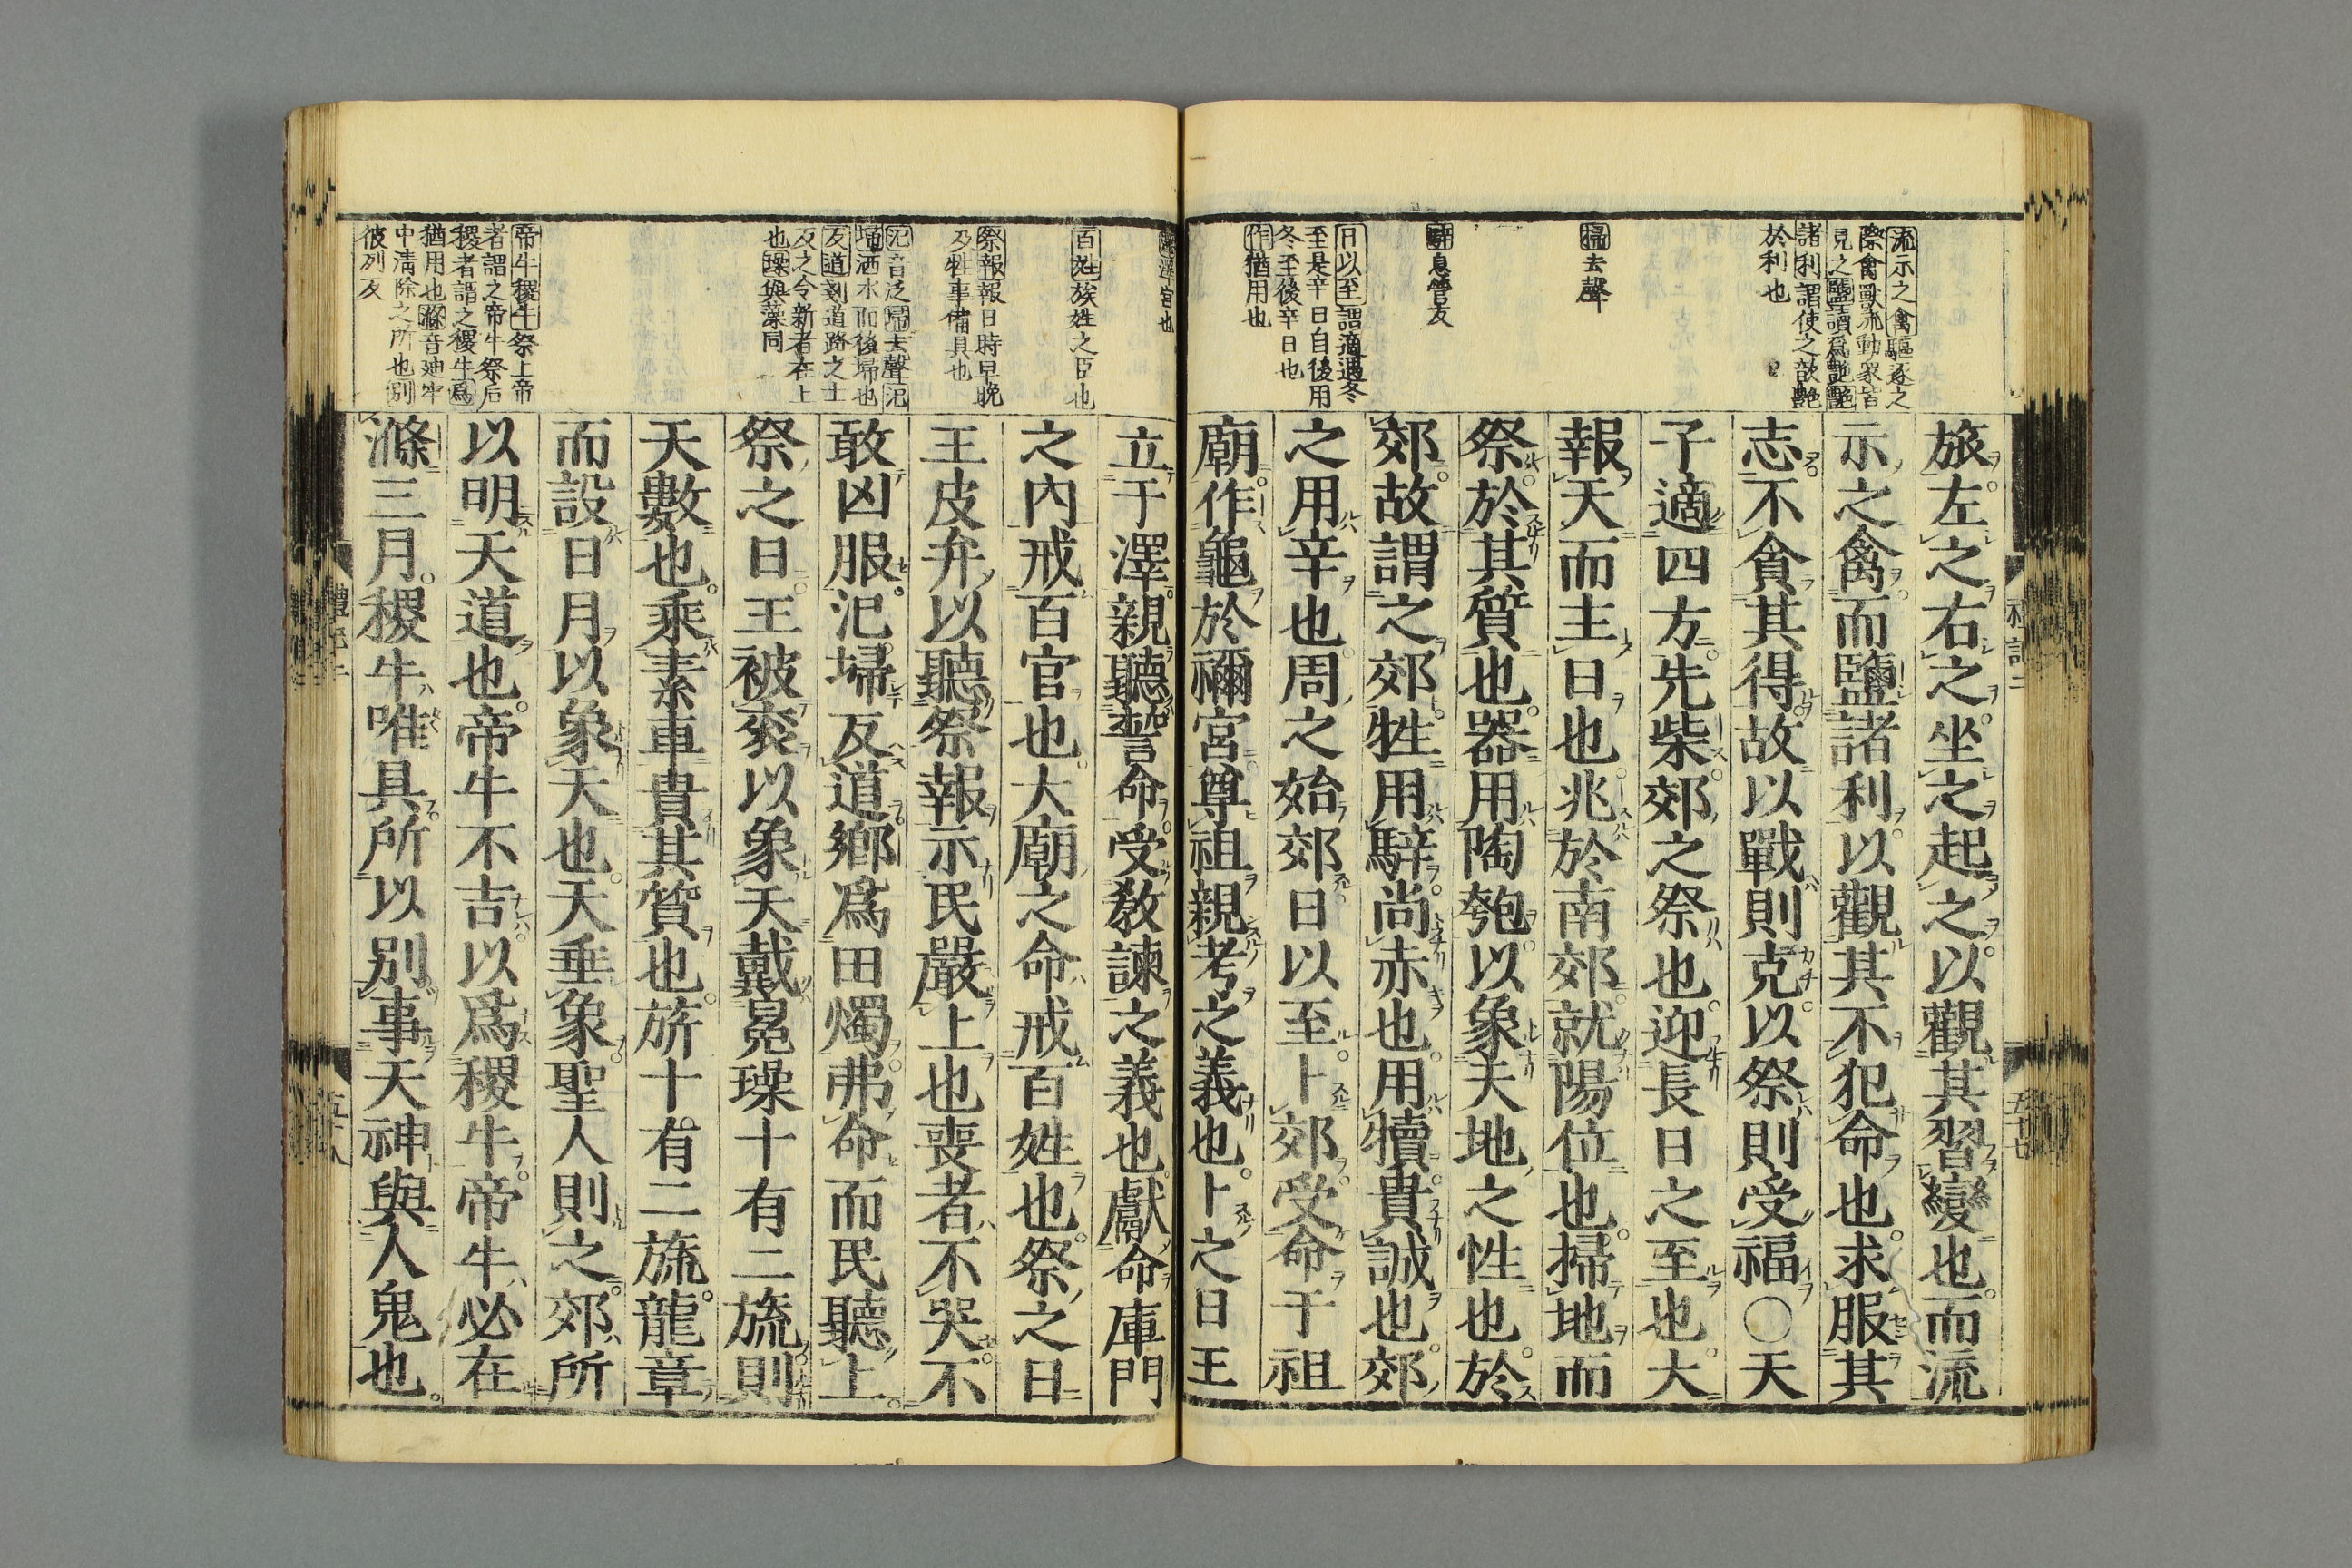 流示之禽驅逐之
際禽獸流動衆皆
見之鹽讀爲艶艶
諸利謂使之歆艶
於利也
掃去聲
騂息營反
日以至謂適遇冬
至是辛日自後用
冬至後辛日也
作猶用也
旅左之右之坐之起之以觀其習變也而流
示之禽而鹽諸利以觀其不犯命也求服其
志不貪其得故以戰則克以祭則受福〇天
子適四方先柴郊之祭也迎長日之至也大
報天而主日也兆於南郊就陽位也掃地而
祭於其質也器用陶匏以象天地之性也於
郊故謂之郊牲用騂尚赤也用犢貴誠也郊
之用辛也周之始郊日以至卜郊受命于祖
廟作龜於禰宮尊祖親考之義也卜之日王
禮記二
五十七
百姓族姓之臣也
祭報報日時早晚
及牲事備具也
汜音泛埽去聲汜
埽洒水而後埽也
反道剗道路之土
反之令新者在上
也璪與藻同
帝牛稷牛祭上帝
者謂之帝牛祭后
稷者謂之稷牛爲
猶用也滌音廸牢
中淸除之所也別
彼列反
立于澤親聽誓命受敎諫之義也獻命庫門
之內戒百官也大廟之命戒百姓也祭之日
王皮弁以聽祭報示民嚴上也喪者不哭不
敢凶服汜埽反道鄕爲田燭弗命而民聽上
祭之日王被袞以象天戴冕璪十有二旒則
天數也乘素車貴其質也旂十有二旒龍章
而設日月以象天也天垂象聖人則之郊所
以明天道也帝牛不吉以爲稷牛帝牛必在
滌三月稷牛唯具所以別事天神與人鬼也
禮記二
五十八